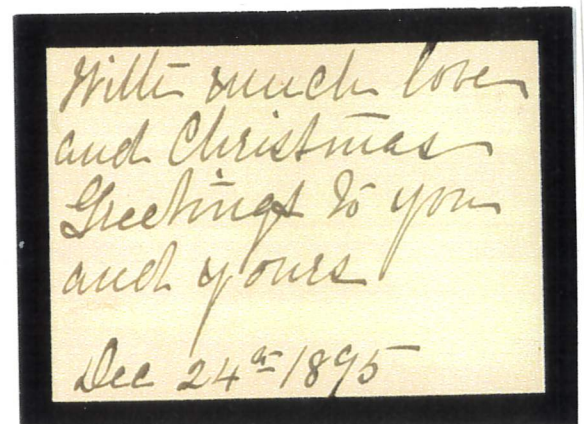 With much love
and Christmas
Greetings to you
and yours
Dec 24th 1895